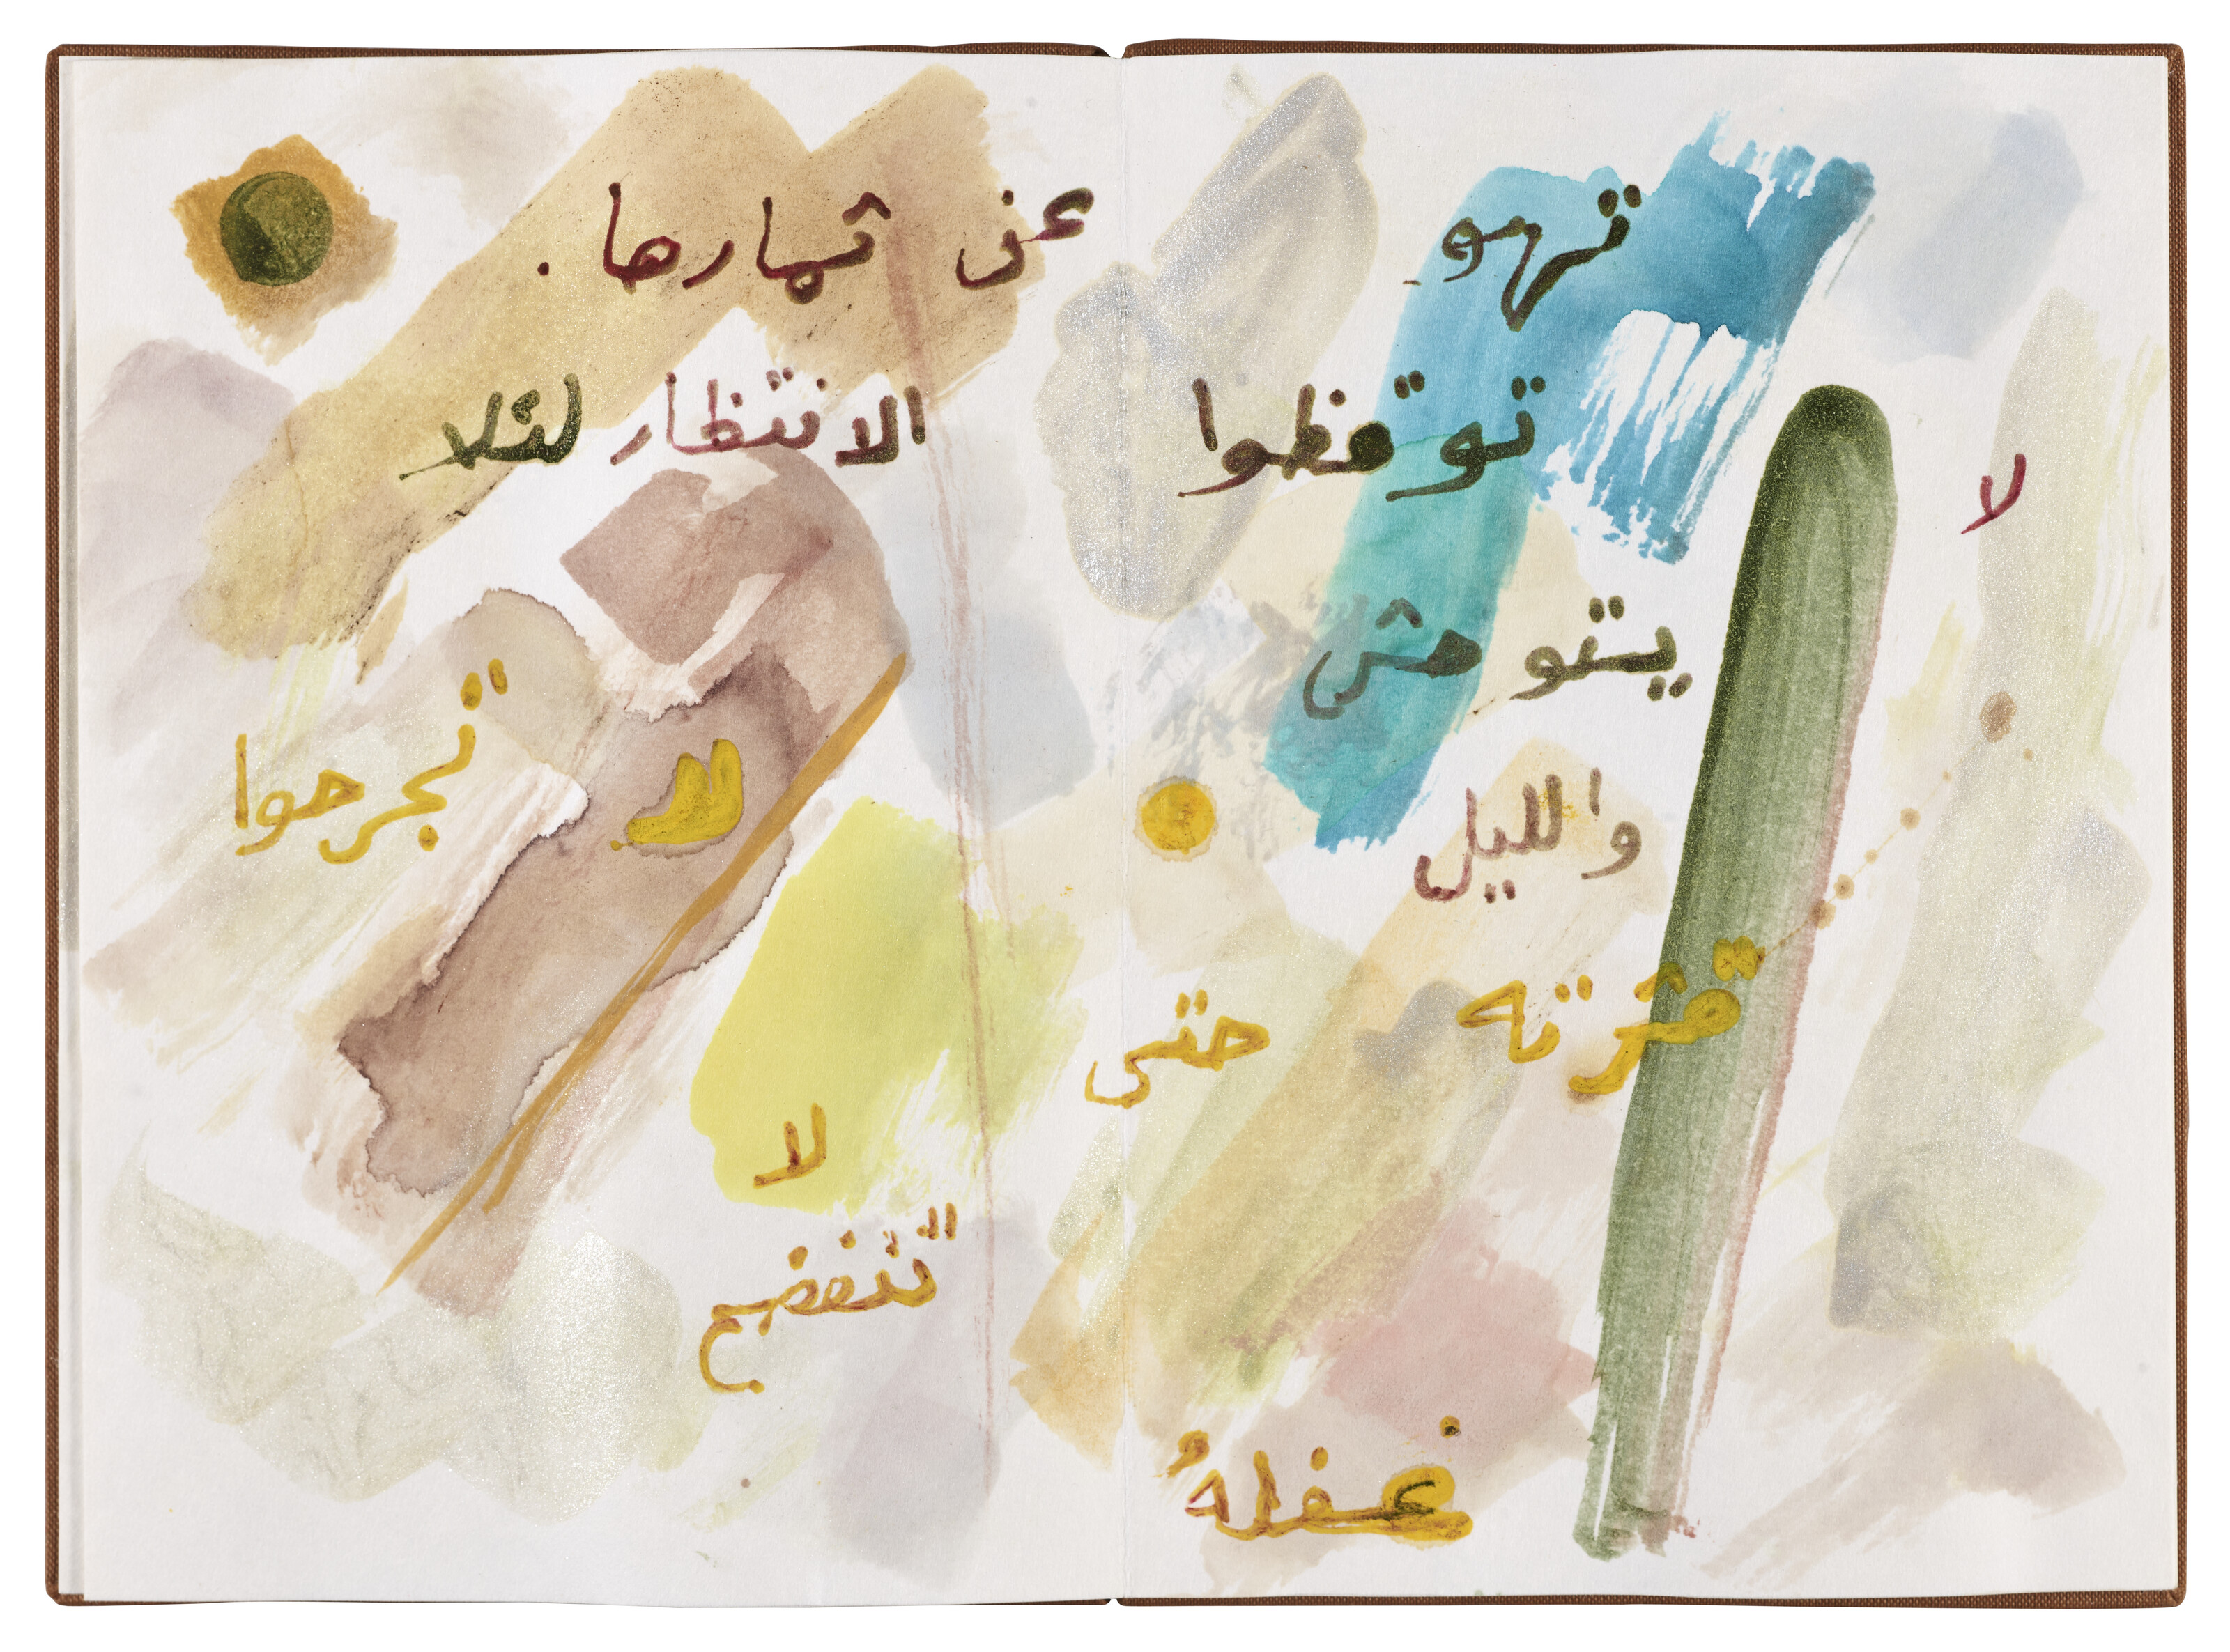 تهو
لا توقظوا
يتوحش
والليل
قشرته حتى
غفلةُ
عن ثمارها .
الانتظار لئلا
لا تجرحوا
لا
تنفضح